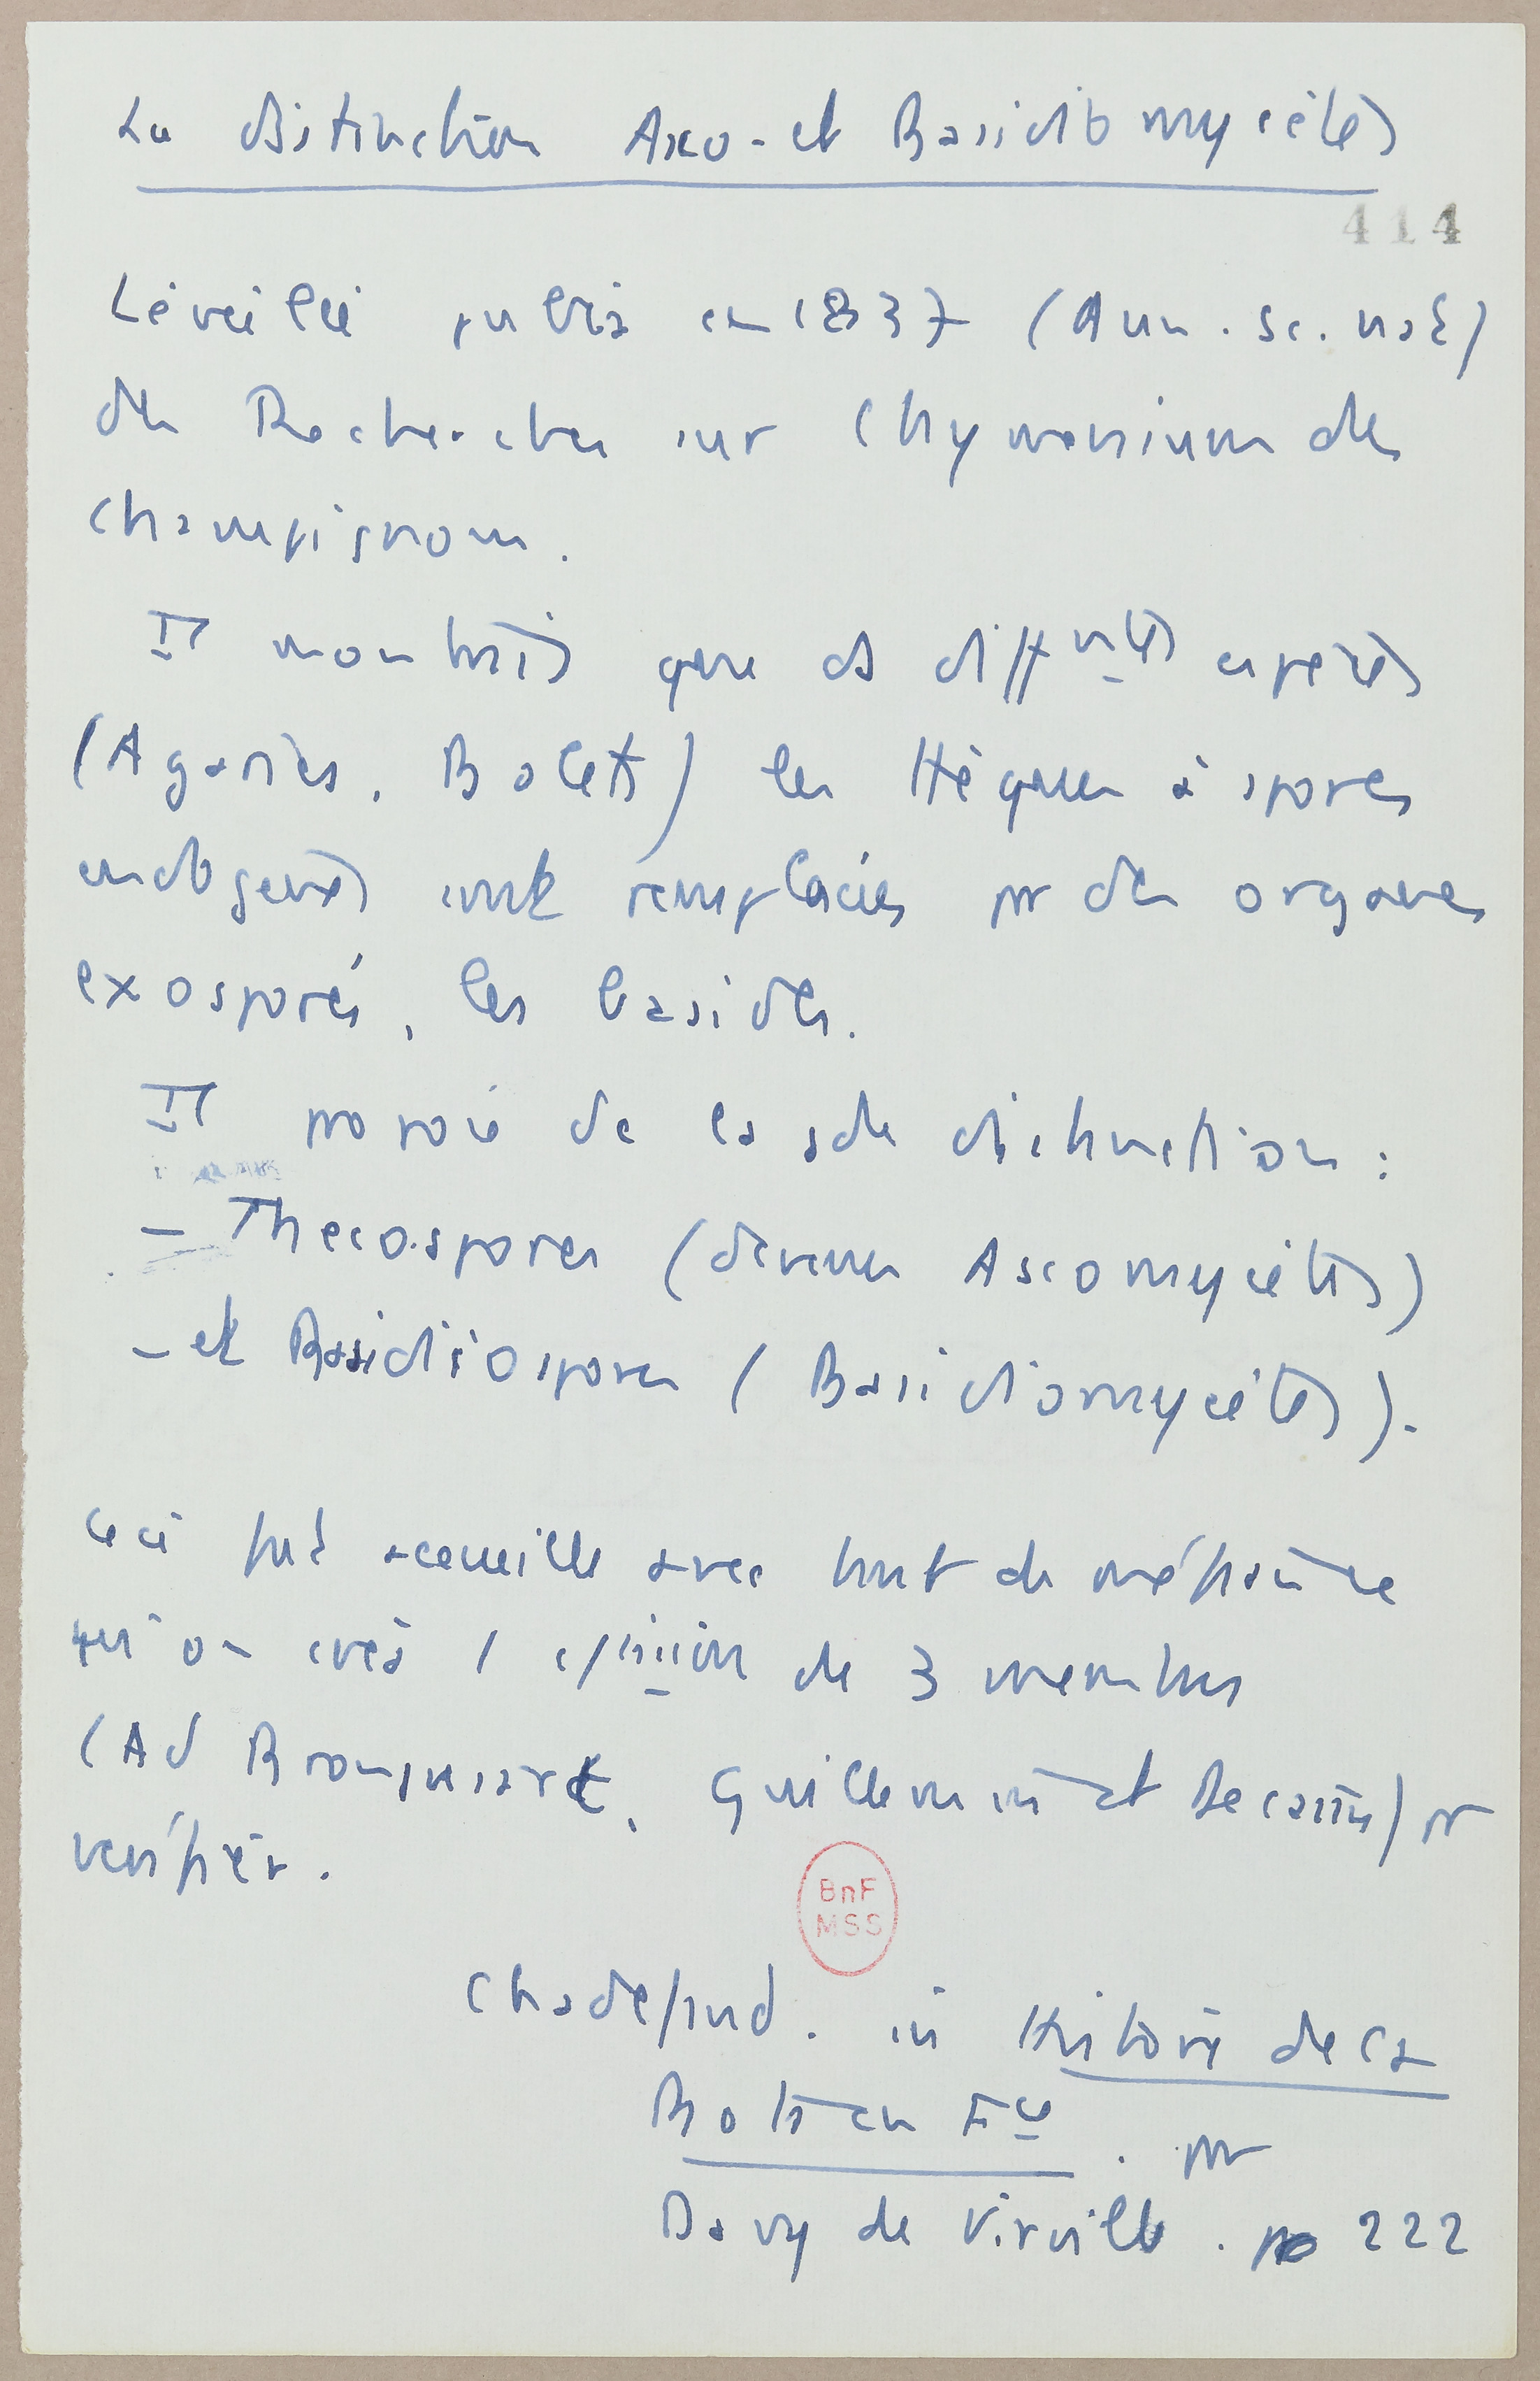 La distinction Asco- et Basidiomycètes
414
Léveillé publia en 1837 (Ann. sc. nat)
des Recherches sur l'hymenium des
champignons.
Il montrait que ds diffntes espèces
(Agarics, Bolets) les thèques à spores
endogènes sont remplacées par des organes
exosporés, les basides.
Il propose de là la distinction :
- Thecospores (devenus Ascomycètes)
- et Basidiospores (Basidiomycètes).
Ceci fut accueilli avec tant de méfiance
qu'on créa 1 c/ission de 3 membres
(Ad Brongniart, Guillemin et Decaisne) pr
vérifier.
BnF
MSS
Chadefaud. in Histoire de la
Botan Fce. par
Davy de Virville. p 222